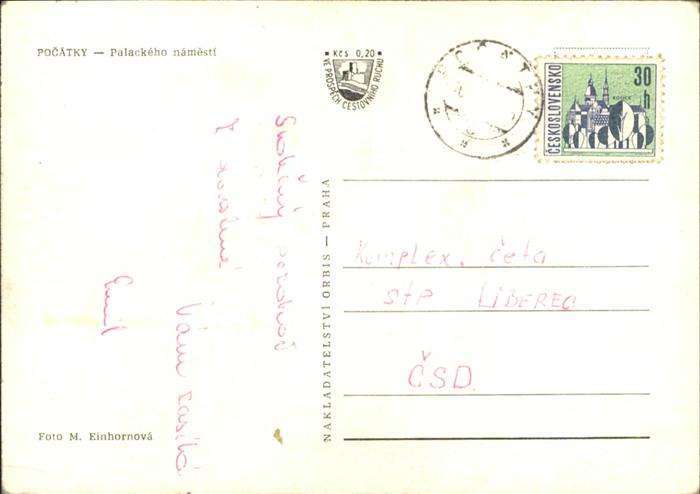 POČÁTKY — Palackého náměstí
Kčs 0,20
VE PROSPĚCH CESTOVNÍHO RUCHU
POČÁTKY
ČESKOSLOVENSKO
30 h
Srdečný pozdrav
z dovolené
Vám zasílá
Emil
NAKLADATELSTVÍ ORBIS — PRAHA
Komplex. četa
STP LIBEREC
ČSD
Foto M. Einhornová